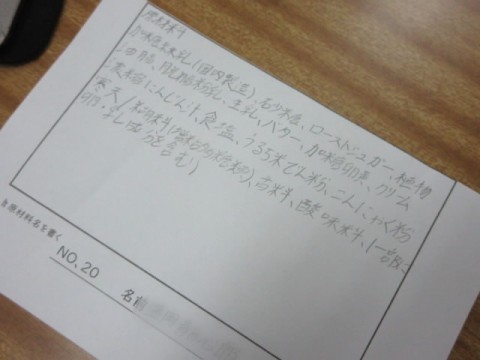 原材料
加糖全粉乳(国内製造)、砂糖、ローストシュガー、植物
油脂、脱脂粉乳、生乳、バター、加糖卵黄、クリーム
濃縮にんじん汁、食塩、うるち米でん粉、こんにゃく粉
寒天/
香料、酸味料、(一部に
卵・乳成分を含む)
原材料名を書く
NO.20
名前